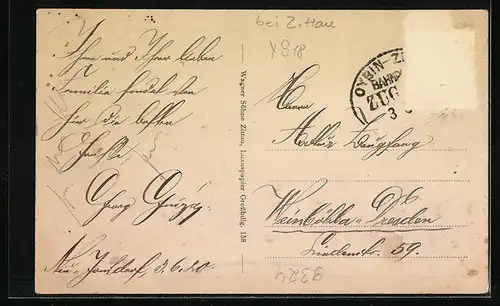 bei Zittau
XS18
Ihnen und Ihrer lieben
Familie sendet von
hier die besten
Grüße
Georg
Neu-Jonsdorf, 2.6.20.
Wagner Söhne Zittau, Luxuspapier Großhdlg. 158
OYBIN-Z
BAHNP
ZUG
3
Herrn
Arthur
Weinböhla-Dresden
Lindenstr. 59.
9324